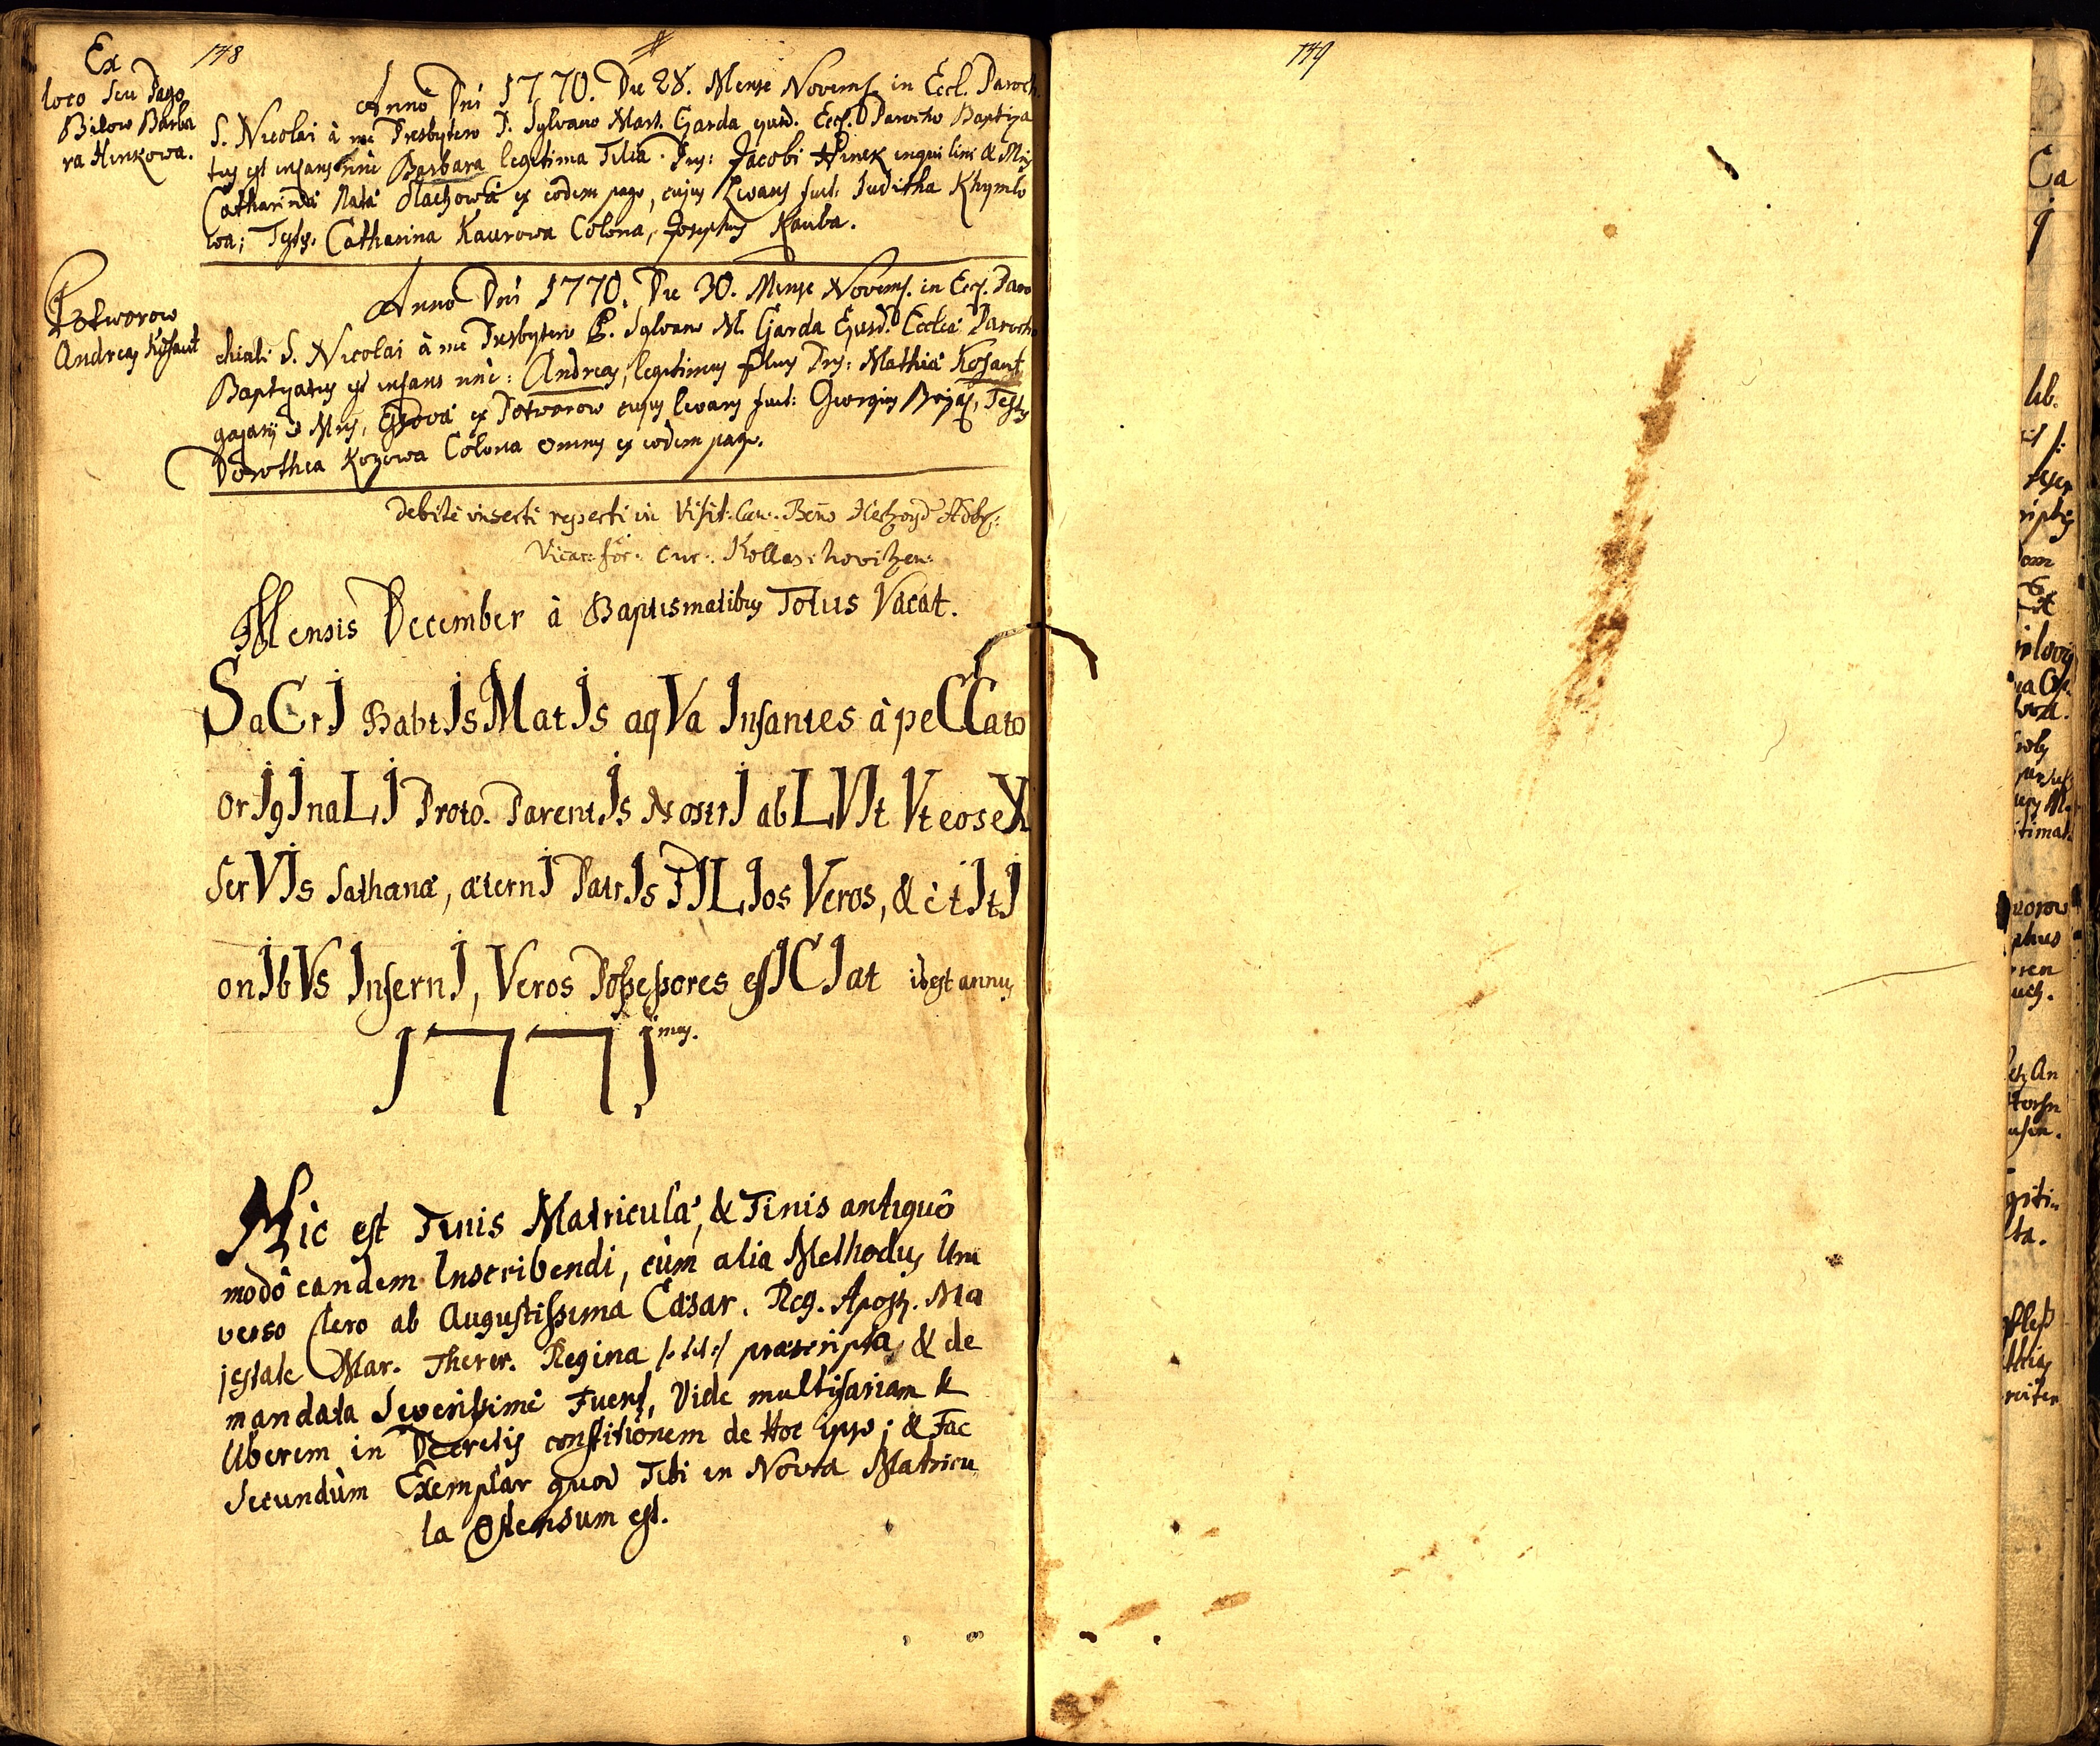 148
Ex
loco seu Pago
Bilow Barba
ra Hinkowa.
Anno Dni 1770. Die 28. Mense Novemb. in Eccl. Paroch.
S. Nicolai à me Presbytero P. Sylvano Mart. Garda ejusd. Eccl. Parocho Baptiza
tus est infans nnè Barbara legitima Filia Prs: Jacobi Hinek inquilini & Mris
Catharinæ Natæ ex eodem pago, cujus Levans fuit: Juditha Khymlo
wa; Testes. Catharina Kaurowa Colona, Josephus Kauba.
Potworow
Andreas Kosaut
Anno Dni 1770. Die 30. Mense Novemb. in Eccl. Paro
chiali S. Nicolai à me Presbytero P. Sylvano M. Garda Ejusd. Ecclæ Parocho
Baptizatus est infans nnè: Andreas, legitimus filius Prs: Mathiæ Kosaut
& Mris, ex Potworow cujus levans fuit: Georgius Testes
Dorothea Kozowa Colona omnes ex eodem pago.
Debitè inserti reperti in Visit. Can. Beno
Vicar: for: cur:
Mensis December à Baptismatibus Totus Vacat.
SaCrJ BabtJsMatJs aqVa Jnfantes à peCCato
orJgJnaLJ Proto-ParentJs NostrJ abLVJt Vt eos eX
serVJs Sathanæ, æternJ PatrJs FJLJos Veros, & è tJtJ
onJbVs JnfernJ, Veros Possessores effJCJat id est annus
1771mus.
Hic est Finis Matriculæ, & Finis antiquô
modô eandem Inscribendi, cùm alia Methodus Uni
verso Clero ab Augustissima Cæsar. Reg. Apost. Ma
jestate Mar. Theres. Regina præscripta, & de
mandata Severissimè Fuerit, Vide multifariam &
Uberem in Decretis de Hoc ipso; & Fac
Secundùm Exemplar quod Tibi in Nova Matricu
la Ostensum est.
149